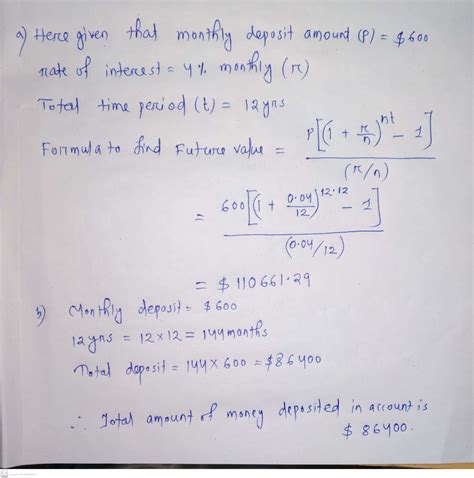 a) Here given that monthly deposit amount (P) = $600
rate of interest = 4% monthly (r)
Total time period (t) = 12 yrs
Formula to find Future value = P[(1 + r/n)^nt - 1] / (r/n)
= 600[(1 + 0.04/12)^12·12 - 1] / (0.04/12)
= $ 110661.29
b) Monthly deposit = $600
12 yrs = 12 × 12 = 144 months
Total deposit = 144 × 600 = $86400
∴ Total amount of money deposited in account is
$ 86400.